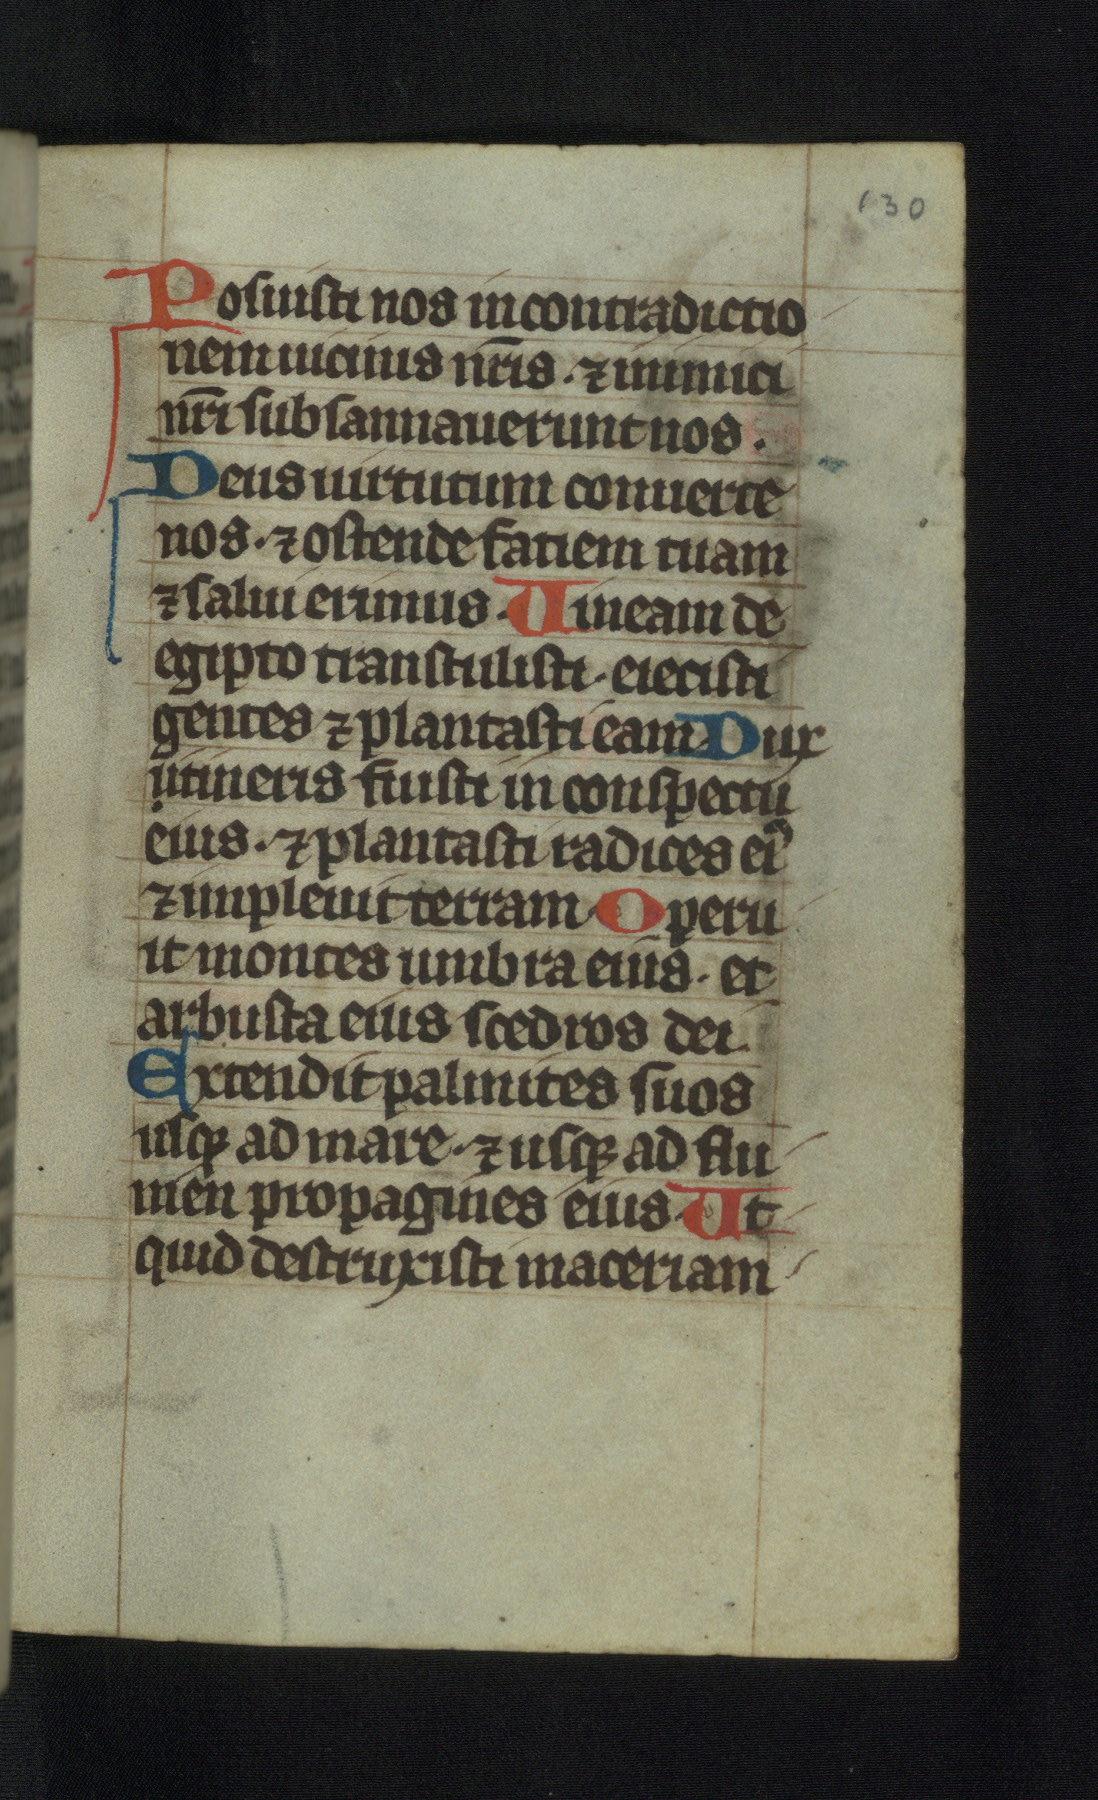 130
Posuisti nos in contradictio
nem uicinis nr̄is . ⁊ inimici
nr̄i subsannauerunt nos .
Deus uirtutum conuerte
nos . ⁊ ostende faciem tuam
⁊ salui erimus . Uineam de
egipto transtulisti . eiecisti
gentes ⁊ plantasti eam Dux
itineris fuisti in conspectu
eius . ⁊ plantasti radices eiꝰ
⁊ impleuit terram . Operu
it montes umbra eius . et
arbusta eius scedros dei .
Extendit palmites suos
usqꝫ ad mare . ⁊ usqꝫ ad flu
men propagines eius . Ut
quid destruxisti maceriam